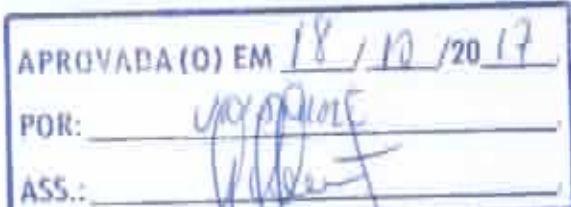 APROVADA (O) EM 18 / 10 /20 17
POR:
ASS.: